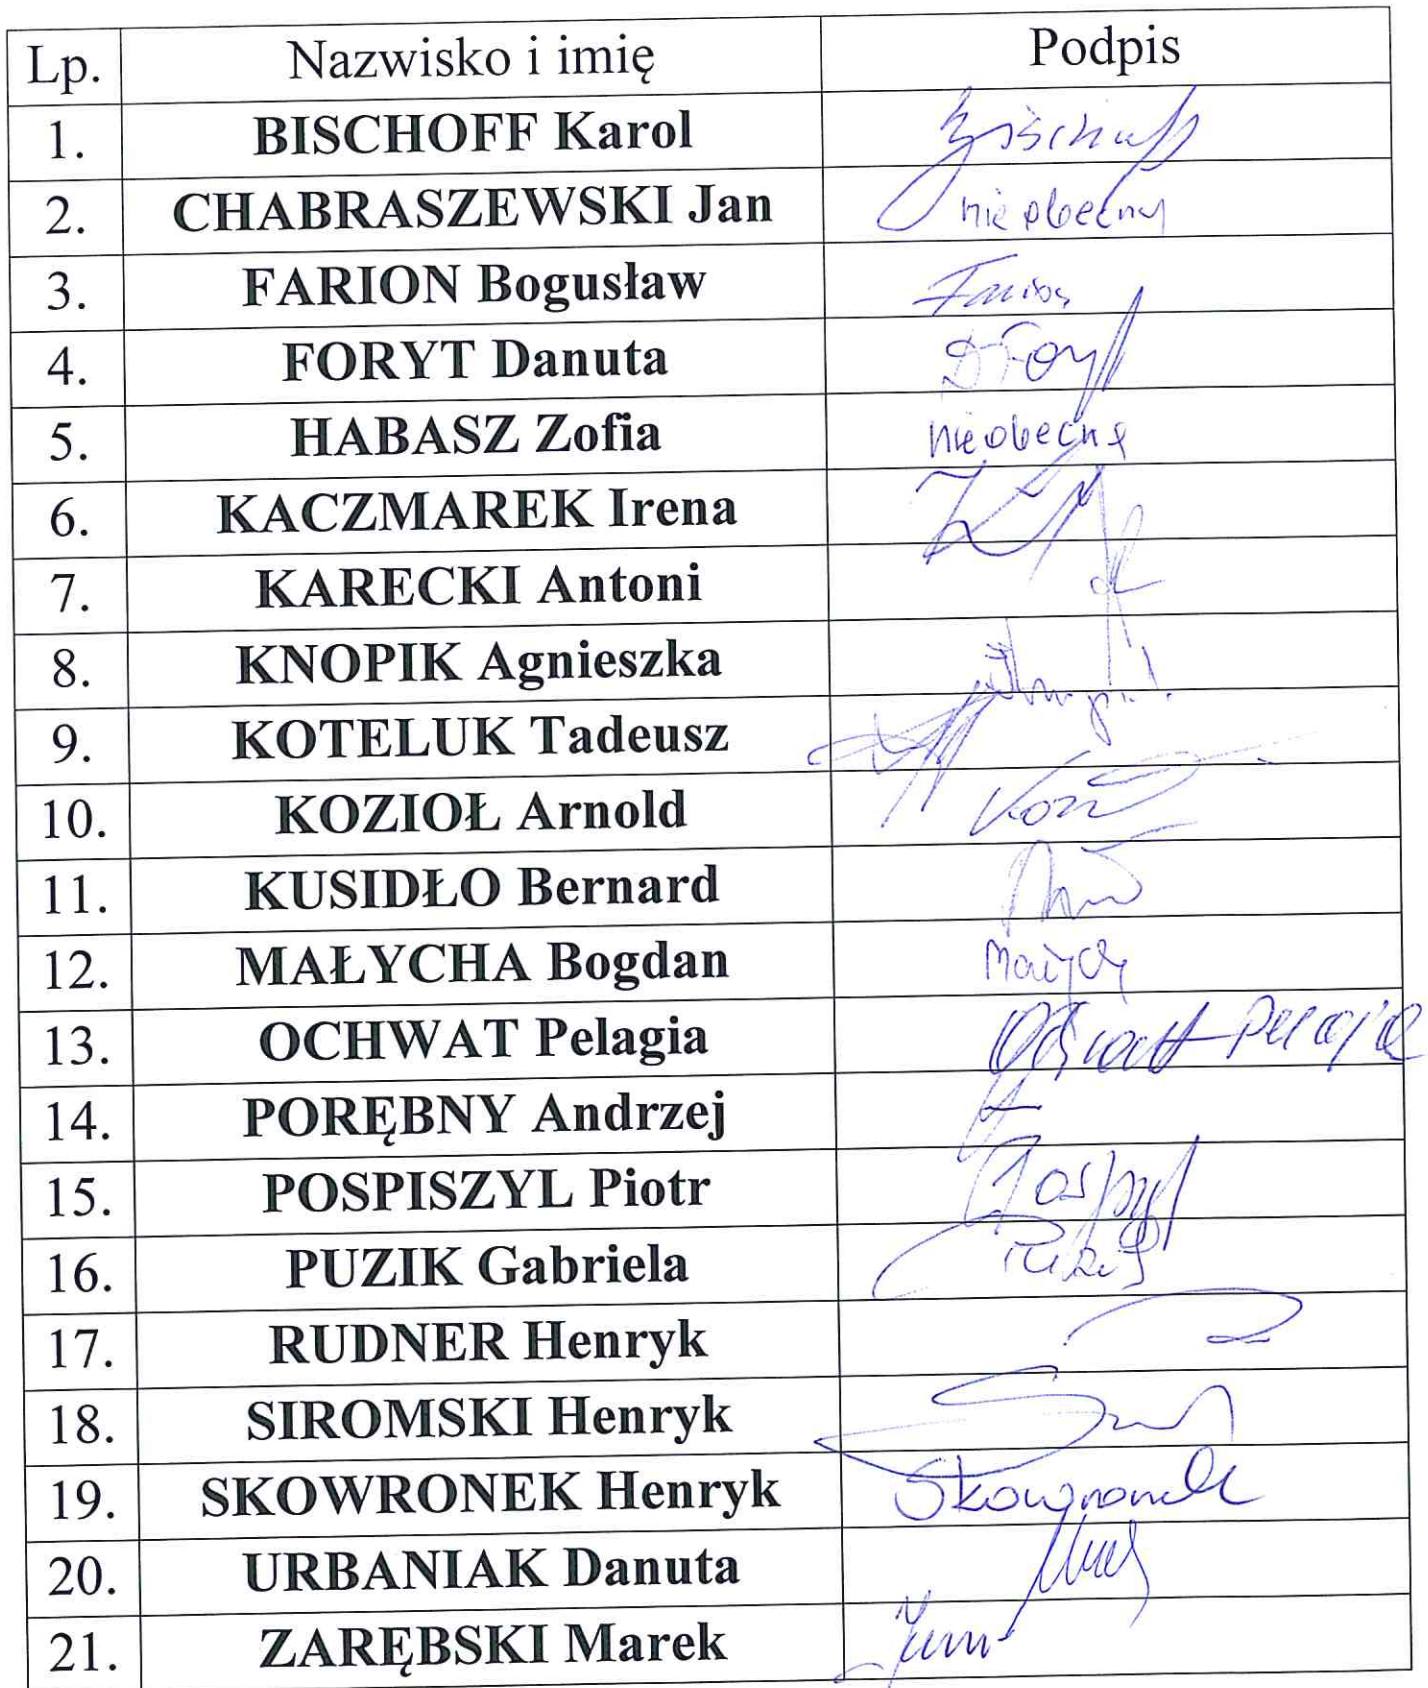 Lp. Nazwisko i imię Podpis
1. BISCHOFF Karol Bischoff
2. CHABRASZEWSKI Jan nieobecny
3. FARION Bogusław Farion
4. FORYT Danuta D Foryt
5. HABASZ Zofia nieobecna
6. KACZMAREK Irena
7. KARECKI Antoni
8. KNOPIK Agnieszka
9. KOTELUK Tadeusz
10. KOZIOŁ Arnold
11. KUSIDŁO Bernard
12. MAŁYCHA Bogdan
13. OCHWAT Pelagia Ochwat Pelagia
14. PORĘBNY Andrzej
15. POSPISZYL Piotr
16. PUZIK Gabriela Puzik
17. RUDNER Henryk
18. SIROMSKI Henryk
19. SKOWRONEK Henryk Skowronek
20. URBANIAK Danuta
21. ZARĘBSKI Marek